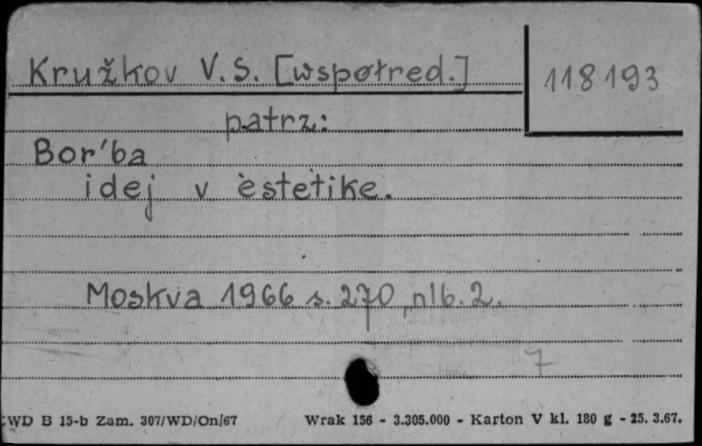 Kružkov V.S. [wspołred.]
118193
patrz:
Bor'ba
idej v èstetike.
Moskva 1966 s. 270, nlb. 2.
7
CWD B 15-b Zam. 307/WD/On/67
Wrak 156 - 3.305.000 - Karton V kl. 180 g - 25. 3.67.